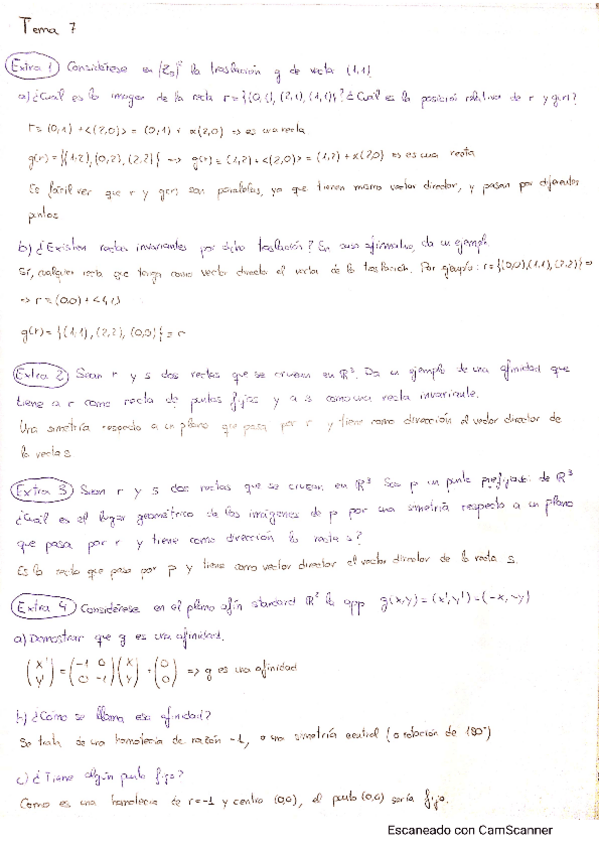 Tema 7
Extra 1 Considérese en (Z₃)² la traslación g de vector (1,1)
a) ¿Cuál es la imagen de la recta r={(0,1),(2,1),(1,1)}? ¿Cuál es la posición relativa de r y g(r)?
r≡(0,1)+<(2,0)> = (0,1)+α(2,0) => es una recta
g(r)={(1,2),(0,2),(2,2)} -> g(r)≡(1,2)+<(2,0)> = (1,2)+α(2,0) => es una recta
Es fácil ver que r y g(r) son paralelas, ya que tienen mismo vector director, y pasan por diferentes
puntos
b) ¿Existen rectas invariantes por dicha traslación? En caso afirmativo, da un ejemplo
Sí, cualquier recta que tenga como vector director el vector de la traslación. Por ejemplo: r={(0,0),(1,1),(2,2)} =>
=> r≡(0,0)+<(1,1)>
g(r)={(1,1),(2,2),(0,0)}=r
Extra 2 Sean r y s dos rectas que se cruzan en R³. Da un ejemplo de una afinidad que
tiene a r como recta de puntos fijos y a s como una recta invariante.
Una simetría respecto a un plano que pasa por r y tiene como dirección el vector director de
la recta s
Extra 3 Sean r y s dos rectas que se cruzan en R³ Sea p un punto prefijado de R³
¿Cuál es el lugar geométrico de las imágenes de p por una simetría respecto a un plano
que pasa por r y tiene como dirección la recta s?
Es la recta que pasa por p y tiene como vector director el vector director de la recta s.
Extra 4 Considérese en el plano afín standard R² la app g(x,y)=(x',y')=(-x,-y)
a) Demostrar que g es una afinidad.
(x' y')=(-1 0 0 -1)(x y)+(0 0) => g es una afinidad
b) ¿Cómo se llama esa afinidad?
Se trata de una homotecia de razón -1, o una simetría central (o rotación de 180°)
c) ¿Tiene algún punto fijo?
Como es una homotecia de r=-1 y centro (0,0), el punto (0,0) sería fijo.
Escaneado con CamScanner